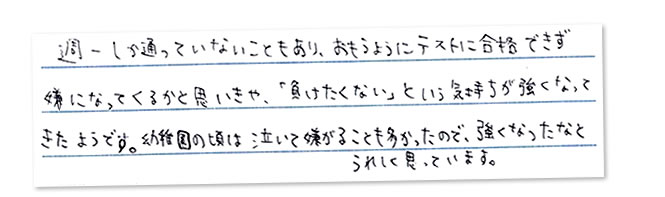 週一しか通っていないこともあり、おもうようにテストに合格できず
嫌になってくるかと思いきや、「負けたくない」という気持ちが強くなって
きたようです。幼稚園の頃は泣いて嫌がることも多かったので、強くなったなと
うれしく思っています。